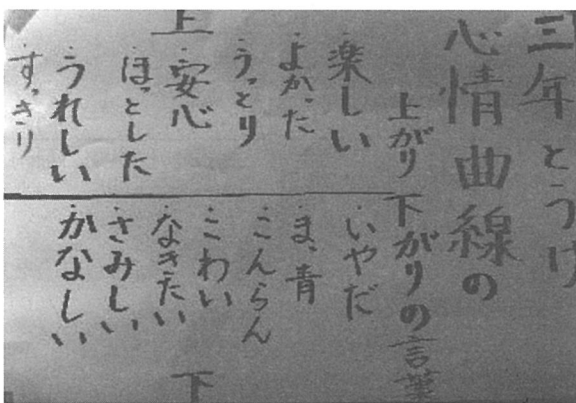 三年とうげ
心情曲線の
上がり下がりの言葉
上
・楽しい
・よかった
・うっとり
・安心
・ほっとした
・うれしい
・すっきり
・いやだ
・まっ青
・こんらん
・こわい
・なきたい
・さみしい
・かなしい
下